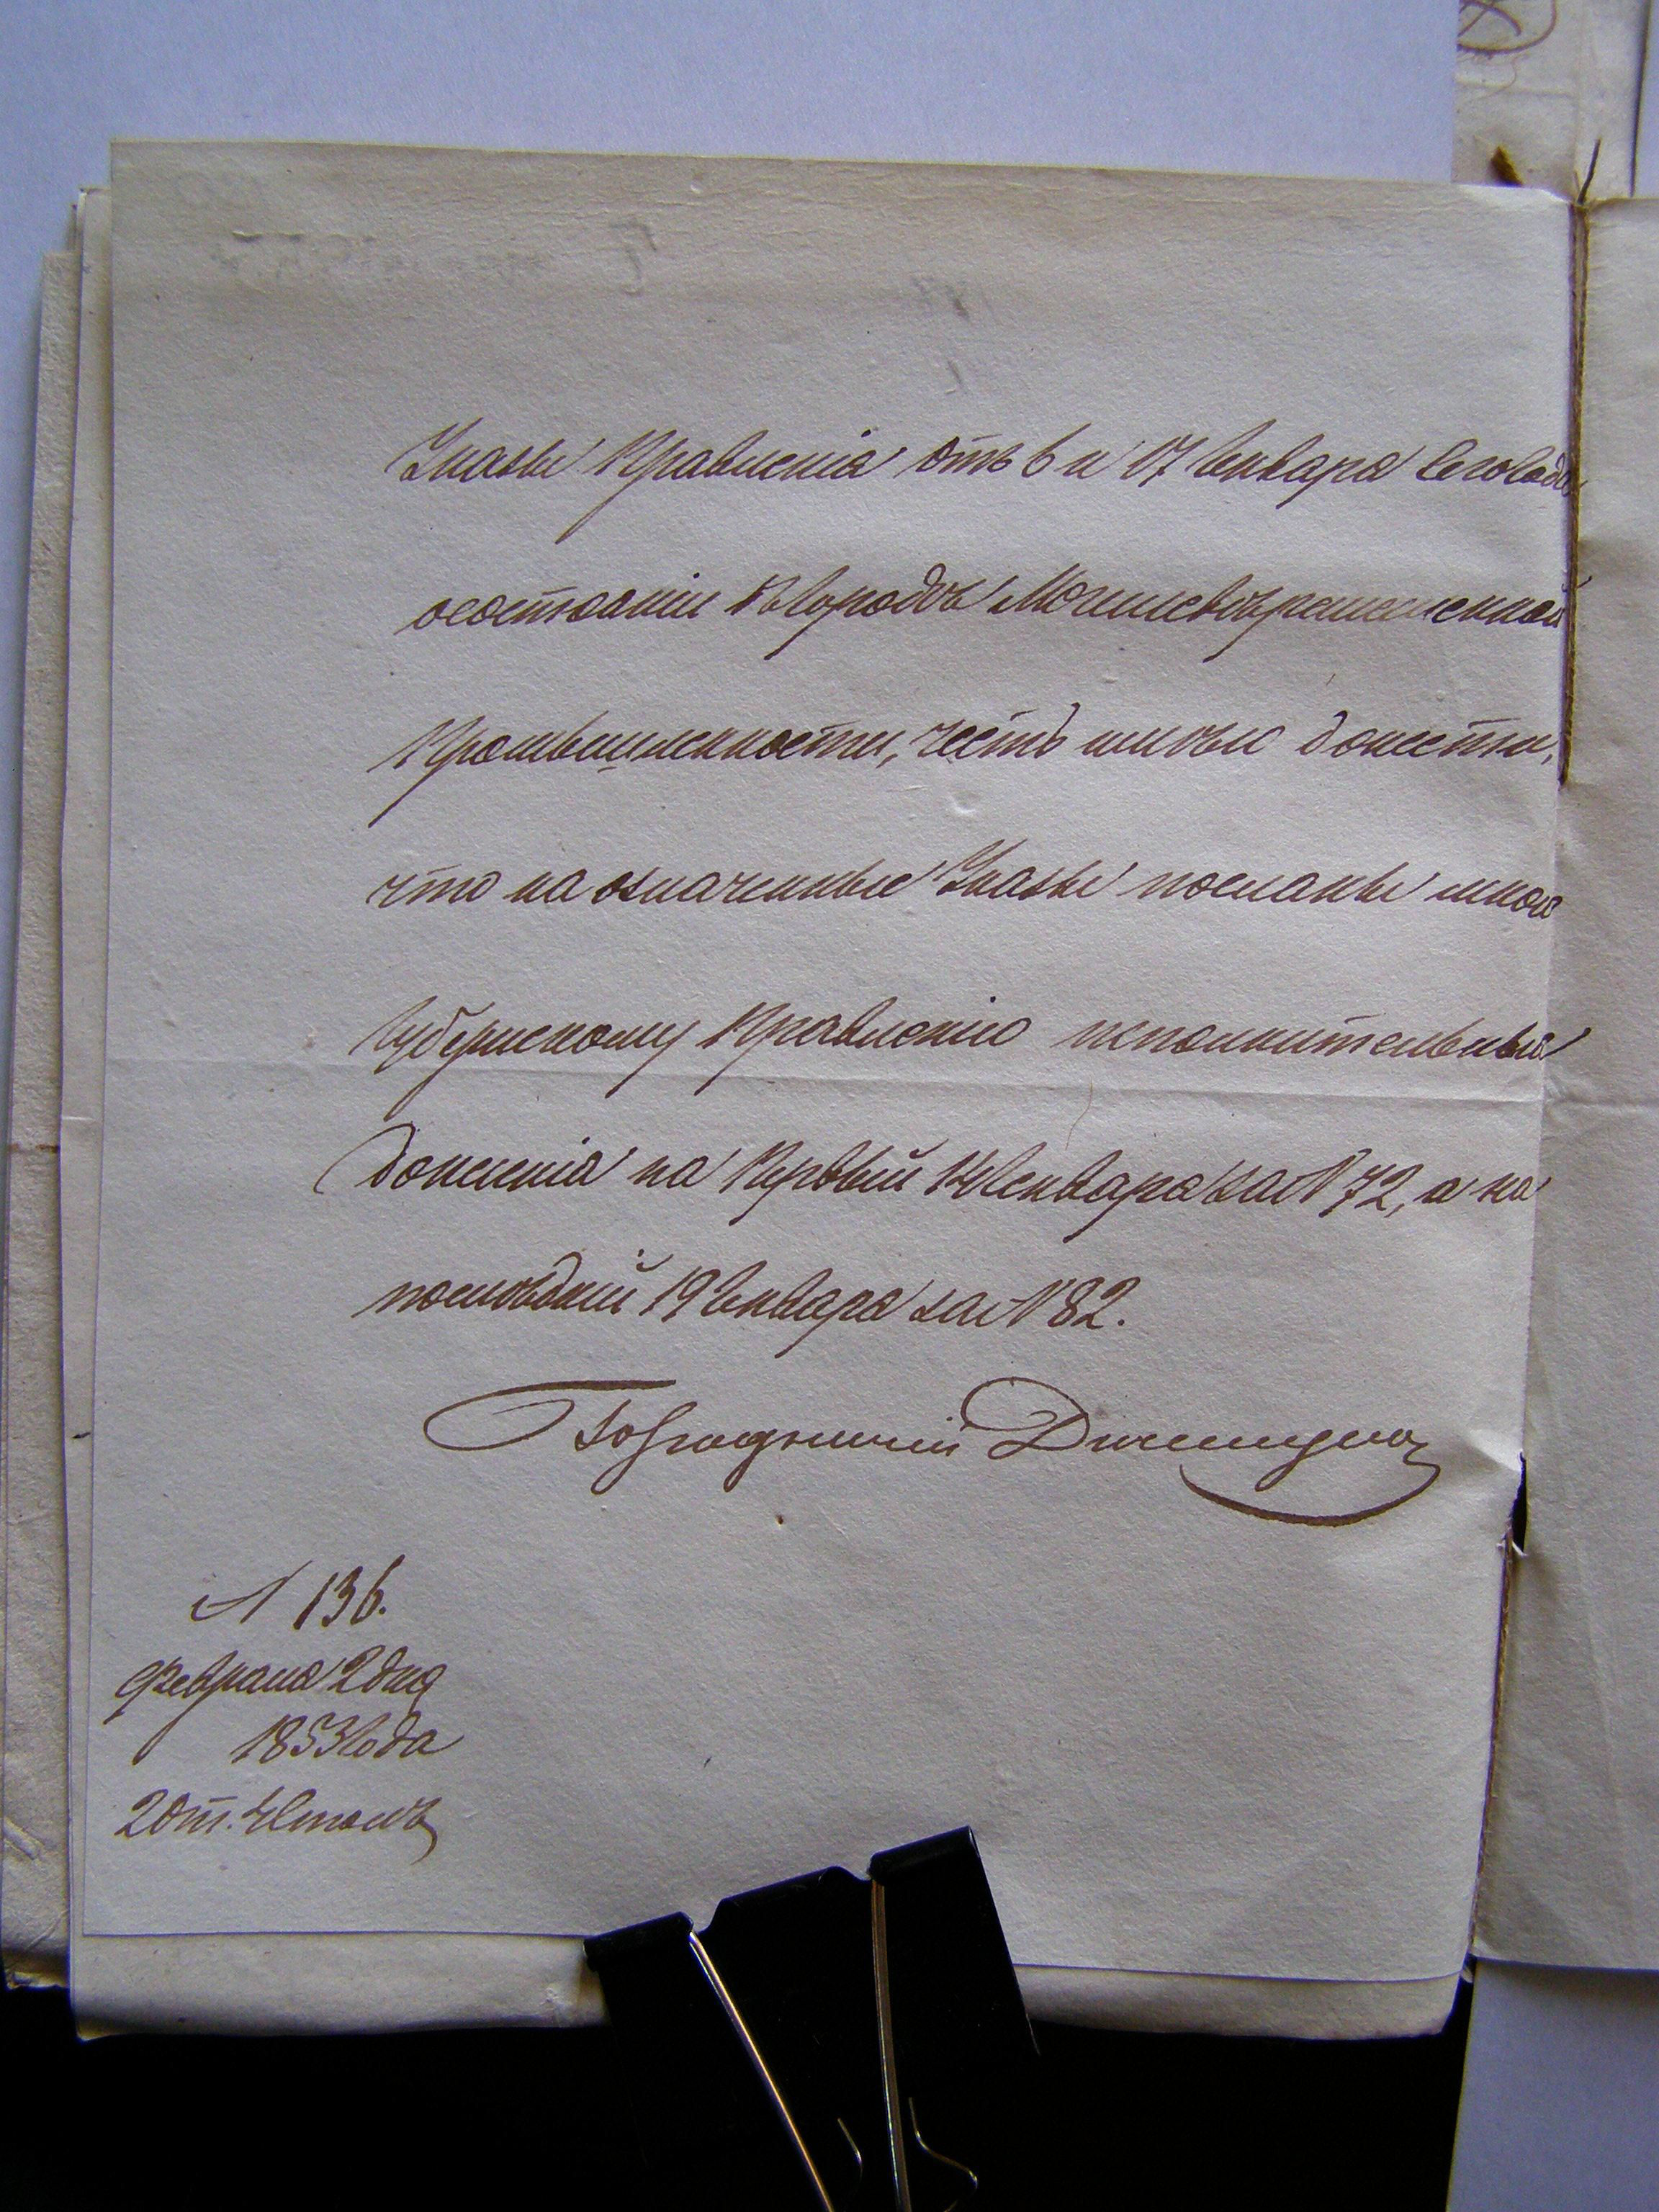 Указы Правленія отъ 6 и 17 Генваря сего года
осостояніи въ городѣ Могилевѣ ремесленной
Промышленности, честь имѣю донести,
что на означенные Указы посланы мною
Губернскому Правленію исполнительныя
донесенія на Первый 14 Генваря за № 72, а на
послѣдній 19 Генваря за № 82.
Городничій
№ 136.
Февраля 2 дня
1853 года
2 От. 4 Столъ